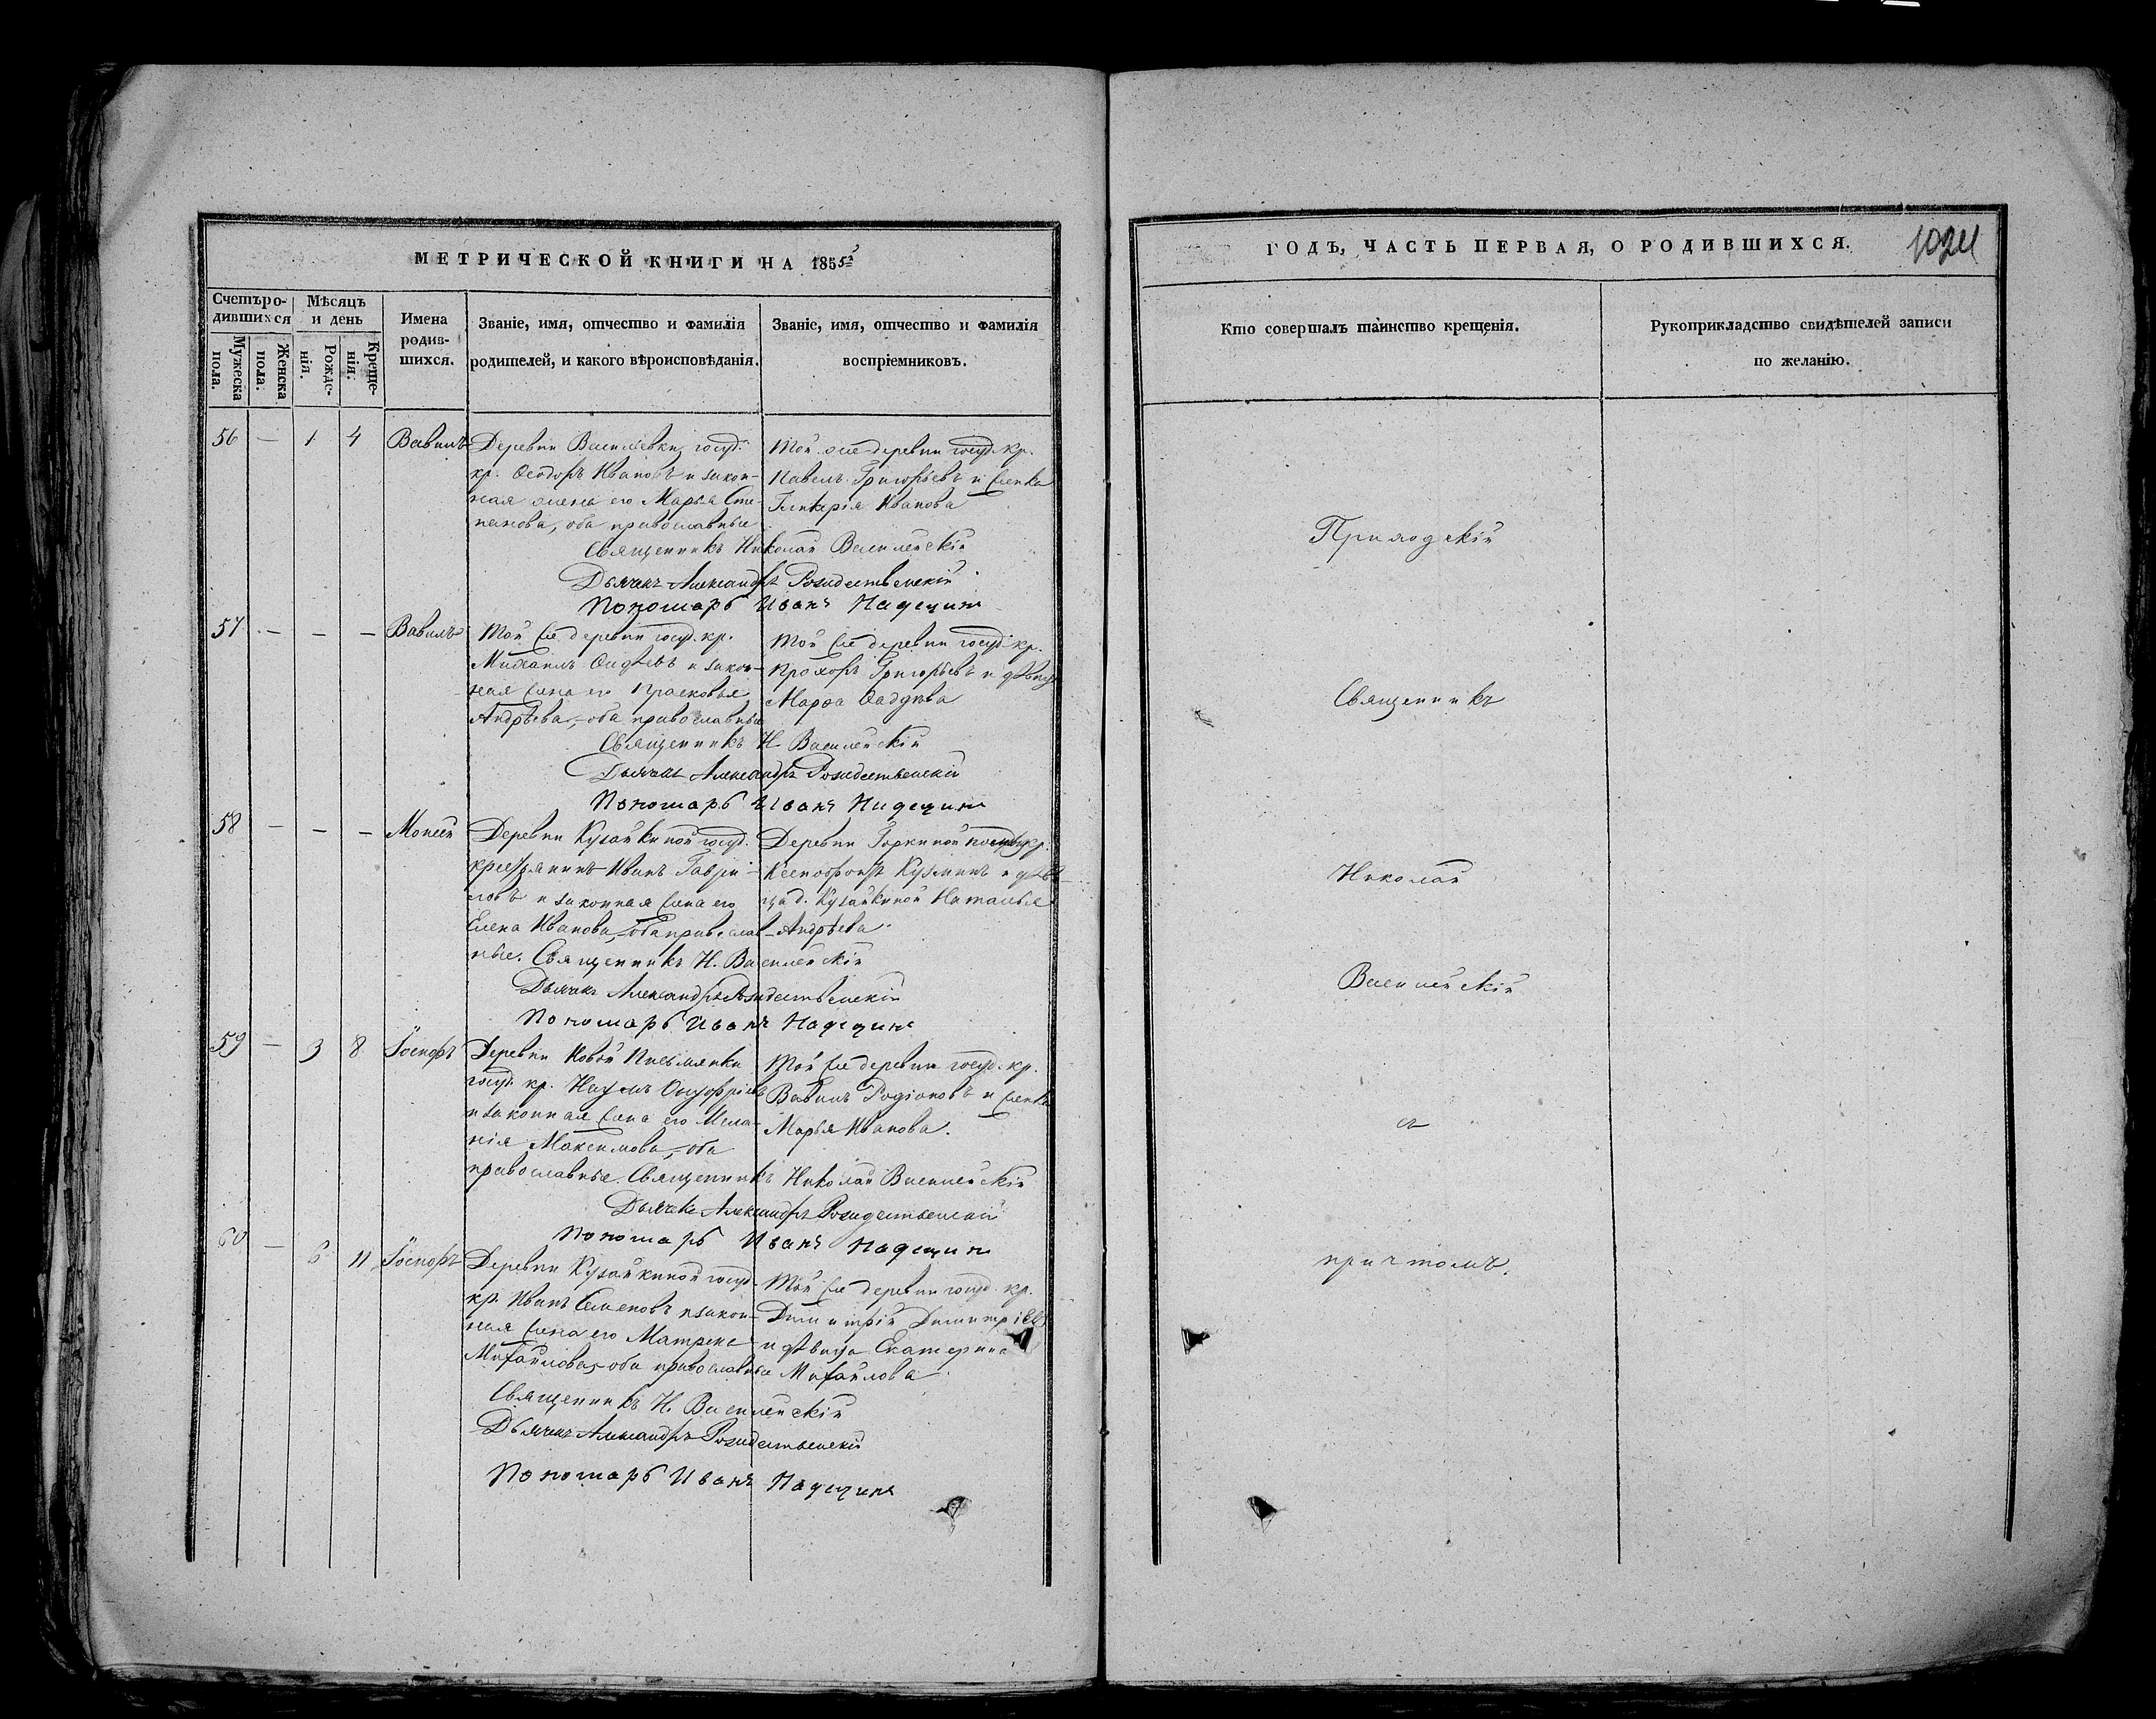 МЕТРИЧЕСКОЙ КНИГИ НА 1855й
Счетъ родившихся
Мѣсяцъ и день
Имена родившихся.
Званіе, имя, отчество и фамилія родителей, и какого вѣроисповѣданія.
Званіе, имя, отчество и фамилія воспріемниковъ.
Мужеска пола.
Женска пола.
Рожденія.
Крещенія.
56 — 1 4 Вавилъ
Деревни Василевки госуд.
кр. Ѳеодоръ Ивановъ и закон-
ная жена его Марья Сте-
панова, оба православные
Той же деревни госуд. кр.
Павелъ Григорьевъ и женка
Гликерія Иванова
Священникъ Николай Василейскій
Дьячекъ Александръ Рождественскій
Пономарь Иванъ Надеждинъ
57 — — — Вавилъ
Той же деревни госуд. кр.
Михаилъ и закон-
ная жена его Прасковья
Андрѣева, оба православные
Той же деревни госуд. кр.
Прохоръ Григорьевъ и дѣвица
Марѳа
Священникъ Н. Василейскій
Дьячекъ Александръ Рождественскій
Пономарь Иванъ Надеждинъ
58 — — — Моисей
Деревни Кузайкиной госуд.
крестьянинъ Иванъ Гаври-
ловъ и законная жена его
Елена Иванова, оба православ-
ные.
Деревни Горкиной кр.
Ксенофонтъ Кузминъ и дѣви-
ца д. Кузайкиной Наталья
Андрѣева
Священникъ Н. Василейскій
Дьячекъ Александръ Рождественскій
Пономарь Иванъ Надеждинъ
59 — 3 8 Іосифъ
Деревни Новой Письмянки
госуд. кр. Наумъ Онуфріевъ
и законная жена его Мела-
нія Максимова, оба
православные.
Той же деревни госуд. кр.
Вавилъ Родіоновъ и женка
Марья Иванова.
Священникъ Николай Василейскій
Дьячекъ Александръ Рождественскій
Пономарь Иванъ Надеждинъ
60 — 6 11 Іосифъ
Деревни Кузайкиной госуд.
кр. Иванъ Семеновъ и закон-
ная жена его Матрена
Михайлова, оба православные
Той же деревни госуд. кр.
Димитрій Димитріевъ
и дѣвица Екатерина
Михайлова.
Священникъ Н. Василейскій
Дьячекъ Александръ Рождественскій
Пономарь Иванъ Надеждинъ
ГОДЪ, ЧАСТЬ ПЕРВАЯ, О РОДИВШИХСЯ.
Кто совершалъ таинство крещенія.
Рукоприкладство свидѣтелей записи
по желанію.
Приходскій
Священникъ
Николай
Василейскій
съ
причтомъ.